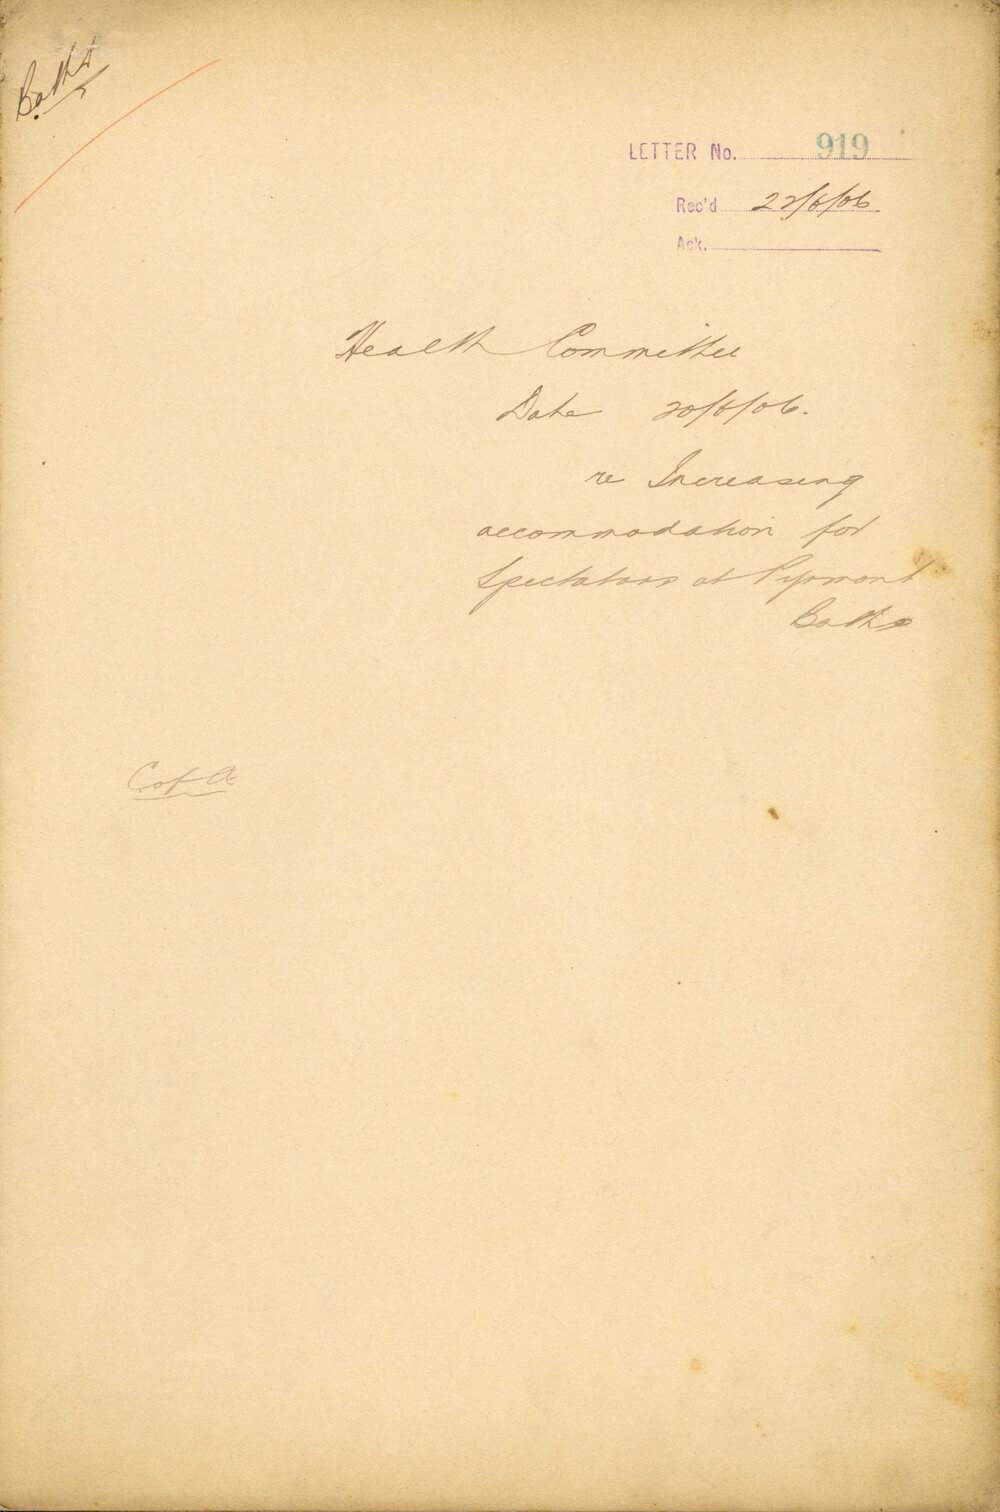 Baths
LETTER No. 919
Rec'd 22/6/06
Ack.
Health Committee
Date 20/6/06.
re Increasing
accommodation for
Spectators at Pyrmont
Baths
C of A